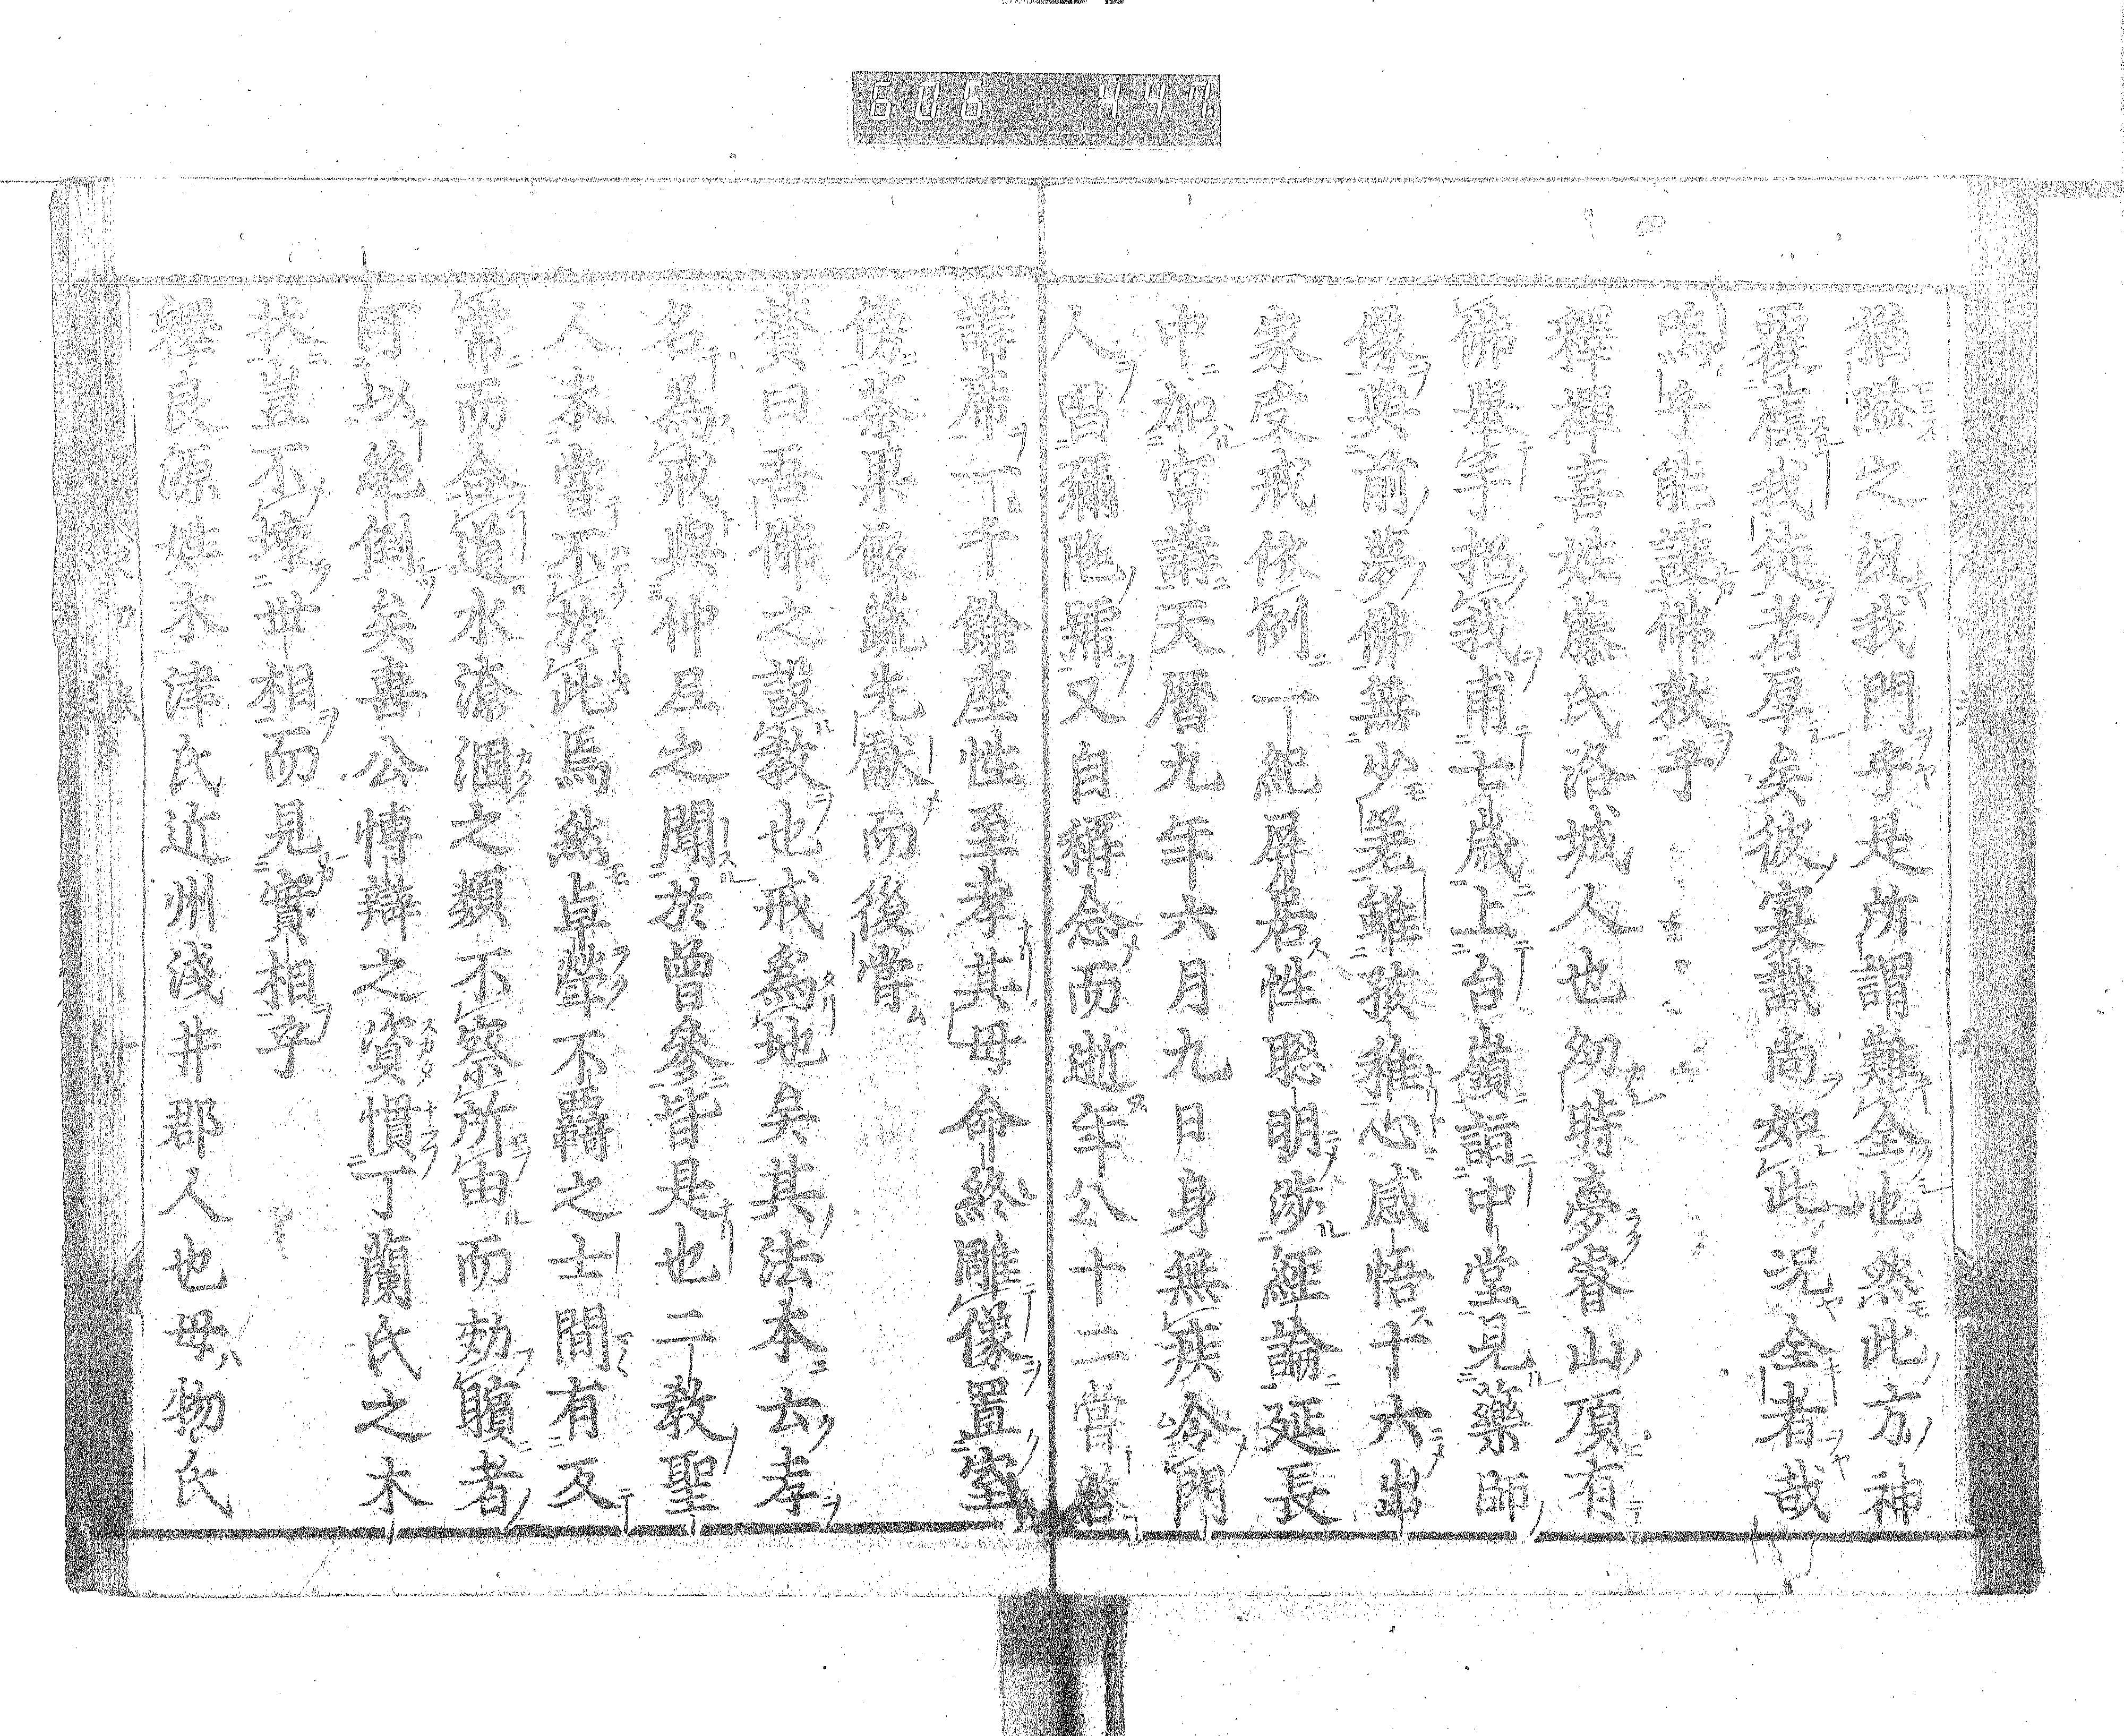 606 447
猶隘之況我門乎是所謂難全也然此方神
覆燾我徒者厚矣彼寡識尚如此況全者哉
嗚乎能護佛敎乎
釋禪喜姓藤氏洛城人也幼時夢睿山頂有
佛擧手招我甫七歲上台嶺詣中堂見藥師
像與前夢佛無少差雖孩稚心感悟十六出
家受戒依例一紀屏居性聡明涉經論延長
中加宮講天曆九年六月九日身無疾令門
人唱彌陁號又自稱念而逝年八十二嘗啓
講席一千餘座性至孝其母命終雕像置室
傍茶果飯蔬先獻而後嘗
賛曰吾佛之設敎也戒爲地矣其法本云孝
名爲戒與仲尼之聞於曾參皆是也二敎聖
人本嘗不於此焉然卓犖不羈之士間有反
常而合道水潦涸之類不察所由而効臏者
可以絶倒矣喜公慱辯之資慣丁蘭氏之木
狀豈不壞世相而見實相乎
釋良源姓木津氏近州淺井郡人也母物氏